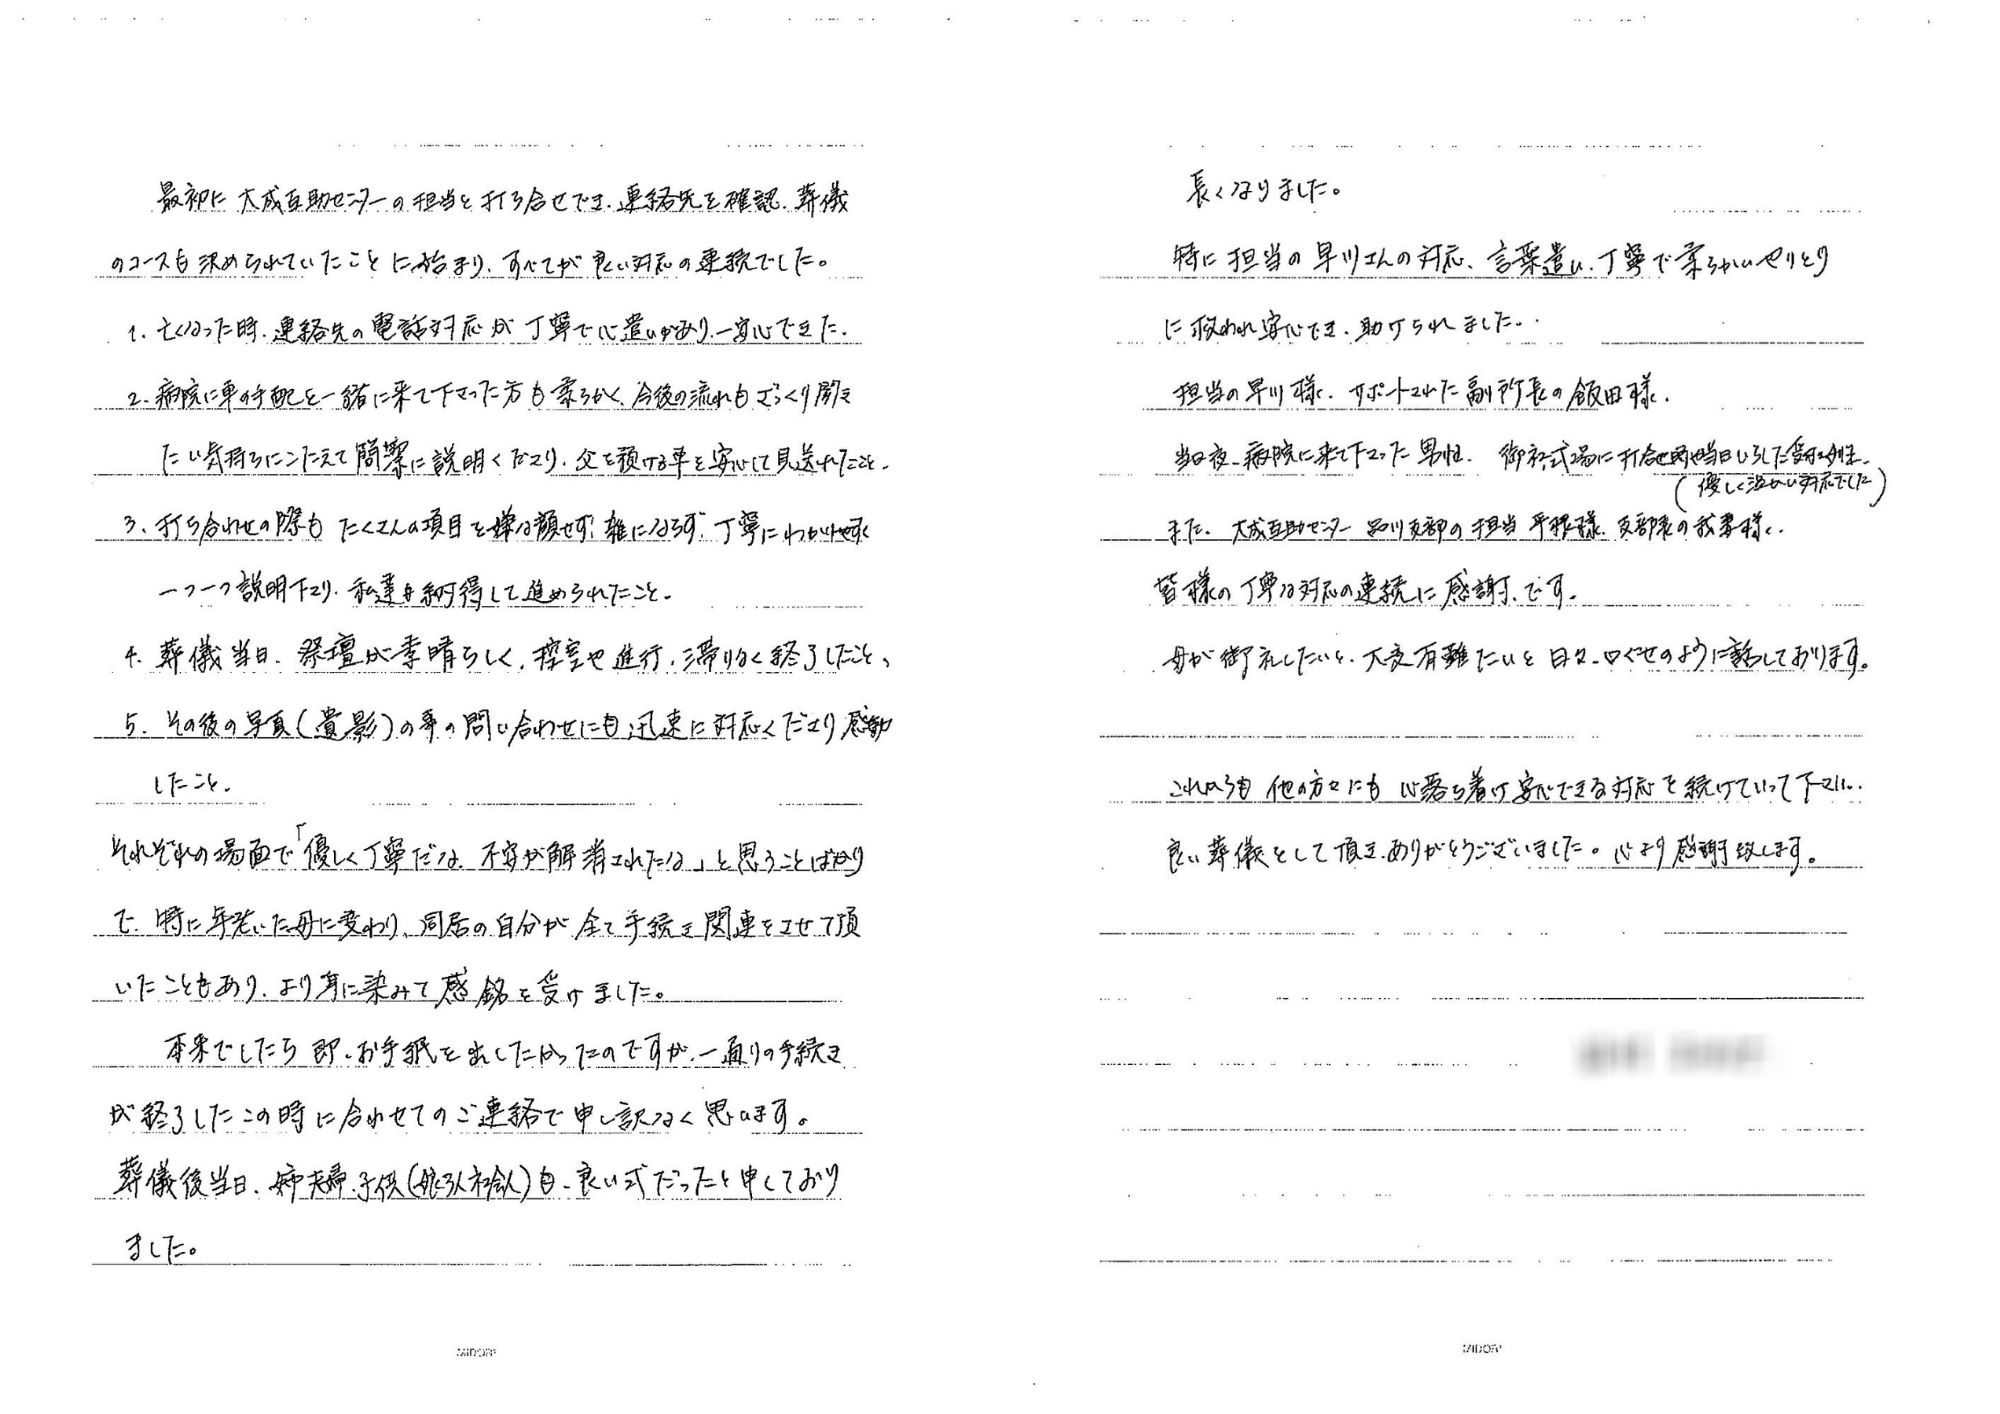 最初に大成互助センターの担当と打ち合せでき、連絡先を確認、葬儀
のコースも決められていたことに始まり、すべてが良い対応の連続でした。
1. 亡くなった時、連絡先の電話対応が丁寧で心遣いがあり、一安心できた。
2. 病院に車の手配と一緒に来て下さった方も柔らかく、今後の流れもざっくり聞き
たい気持ちにこたえて簡潔に説明くださり、父を預ける車を安心して見送れたこと。
3. 打ち合わせの際も たくさんの項目を嫌な顔せず、雑にならず、丁寧にわかりやすく
一つ一つ説明下さり、私達も納得して進められたこと。
4. 葬儀当日、祭壇が素晴らしく、控室や進行、滞りなく終了したこと、
5. その後の写真(遺影)の事の問い合わせにも迅速に対応くださり感動
したこと。
それぞれの場面で「優しく丁寧だな、不安が解消されたな」と思うことばかり
で、特に年老いた母に変わり、同居の自分が全て手続き関連をさせて頂
いたこともあり、より身に染みて感銘を受けました。
本来でしたら即、お手紙を出したかったのですが、一通りの手続き
が終了したこの時に合わせてのご連絡で申し訳なく思います。
葬儀後当日、姉夫婦、子供(娘3人社会人)も、良い式だったと申しており
ました。
MIDORI
長くなりました。
特に担当の早川さんの対応、言葉遣い、丁寧で柔らかいやりとり
に救われ安心でき、助けられました。
担当の早川様、サポートされた副所長の飯田様、
当日夜、病院に来て下さった男性、御社式場に打合せ当日いらした受付女性、
(優しく温かい対応でした)
また、大成互助センター 品川支部の担当 平根様、支部長の我妻様、
皆様の丁寧な対応の連続に感謝、です。
母が御礼したいと、大変有難たいと日々、口ぐせのように話しております。
これからも他の方々にも 心落ち着け安心できる対応を続けていって下さい。
良い葬儀として頂き、ありがとうございました。心より感謝致します。
MIDORI